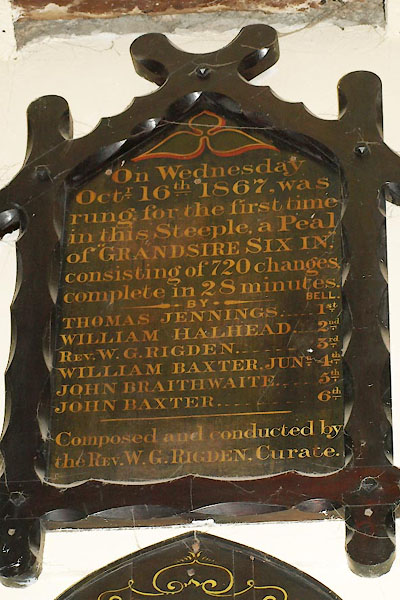 On Wednesday
Octr. 16th 1867, was
rung for the first time
in this Steeple, a Peal
of GRANDSIRE SIX IN,
consisting of 720 changes
complete in 28 minutes.
BY BELL.
THOMAS JENNINGS.... 1st
WILLIAM HALHEAD... 2nd
REV. W. G. RIGDEN........ 3rd
WILLIAM BAXTER, JUNr. 4th
JOHN BRAITHWAITE..... 5th
JOHN BAXTER............ 6th
Composed and conducted by
the REV. W. G. RIGDEN, Curate.